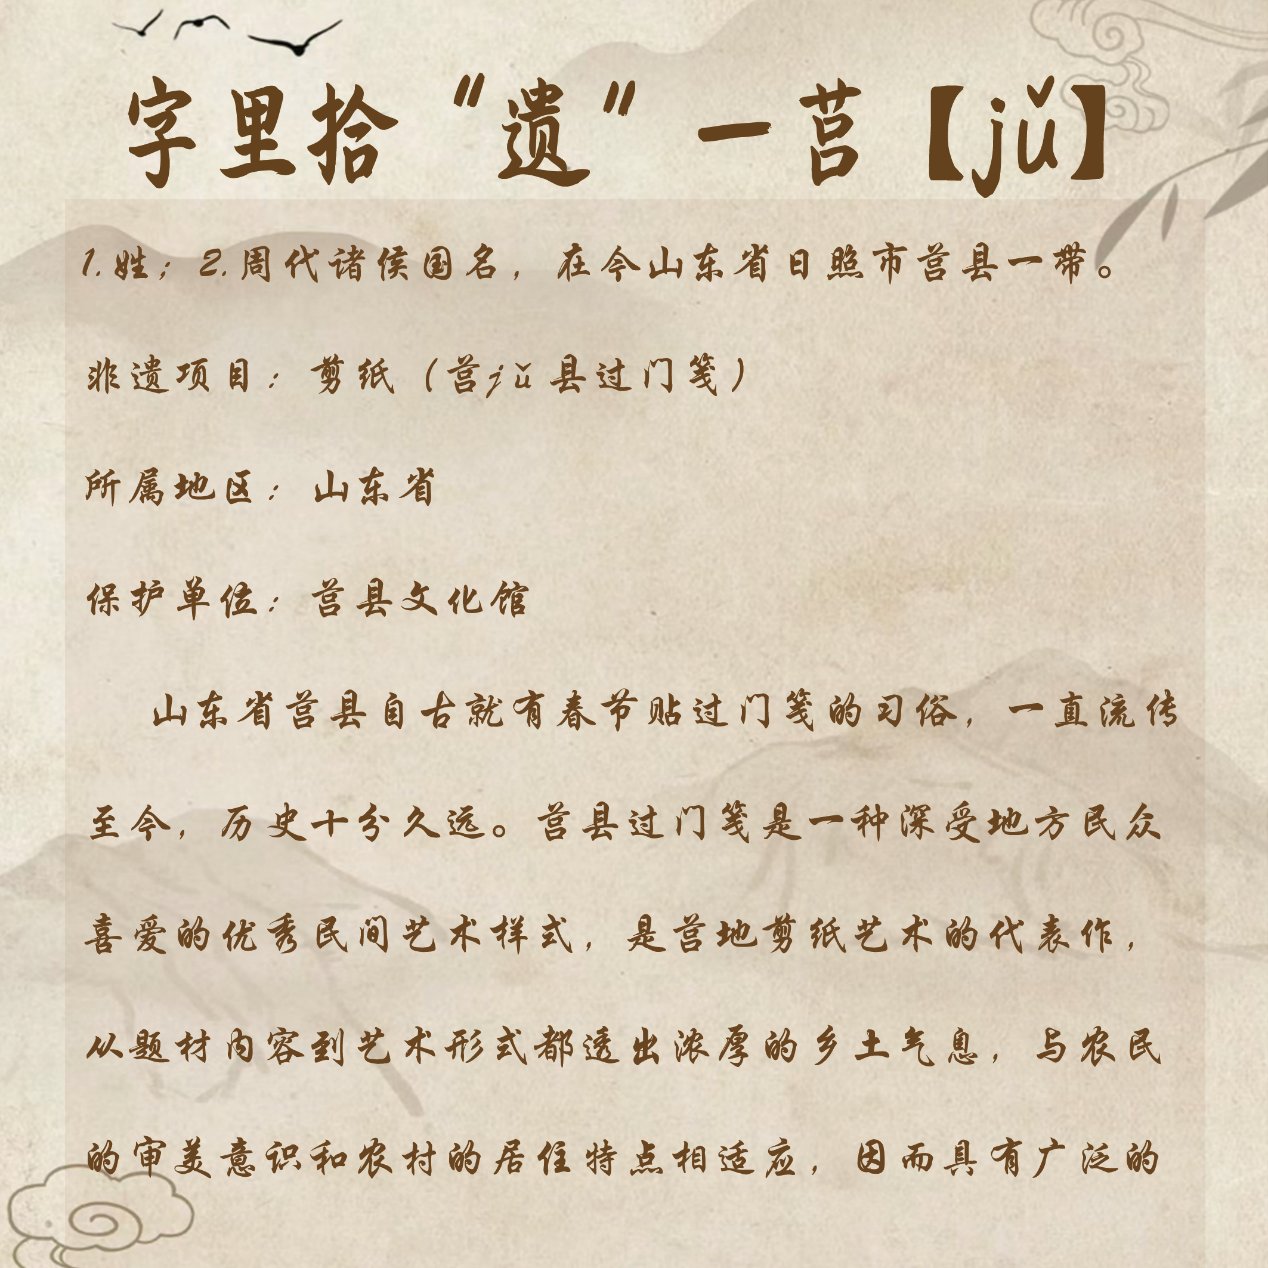 字里拾“遗”一莒【jǔ】
1.姓；2.周代诸侯国名，在今山东省日照市莒县一带。
非遗项目：剪纸（莒jǔ县过门笺）
所属地区：山东省
保护单位：莒县文化馆
山东省莒县自古就有春节贴过门笺的习俗，一直流传
至今，历史十分久远。莒县过门笺是一种深受地方民众
喜爱的优秀民间艺术样式，是莒地剪纸艺术的代表作，
从题材内容到艺术形式都透出浓厚的乡土气息，与农民
的审美意识和农村的居住特点相适应，因而具有广泛的